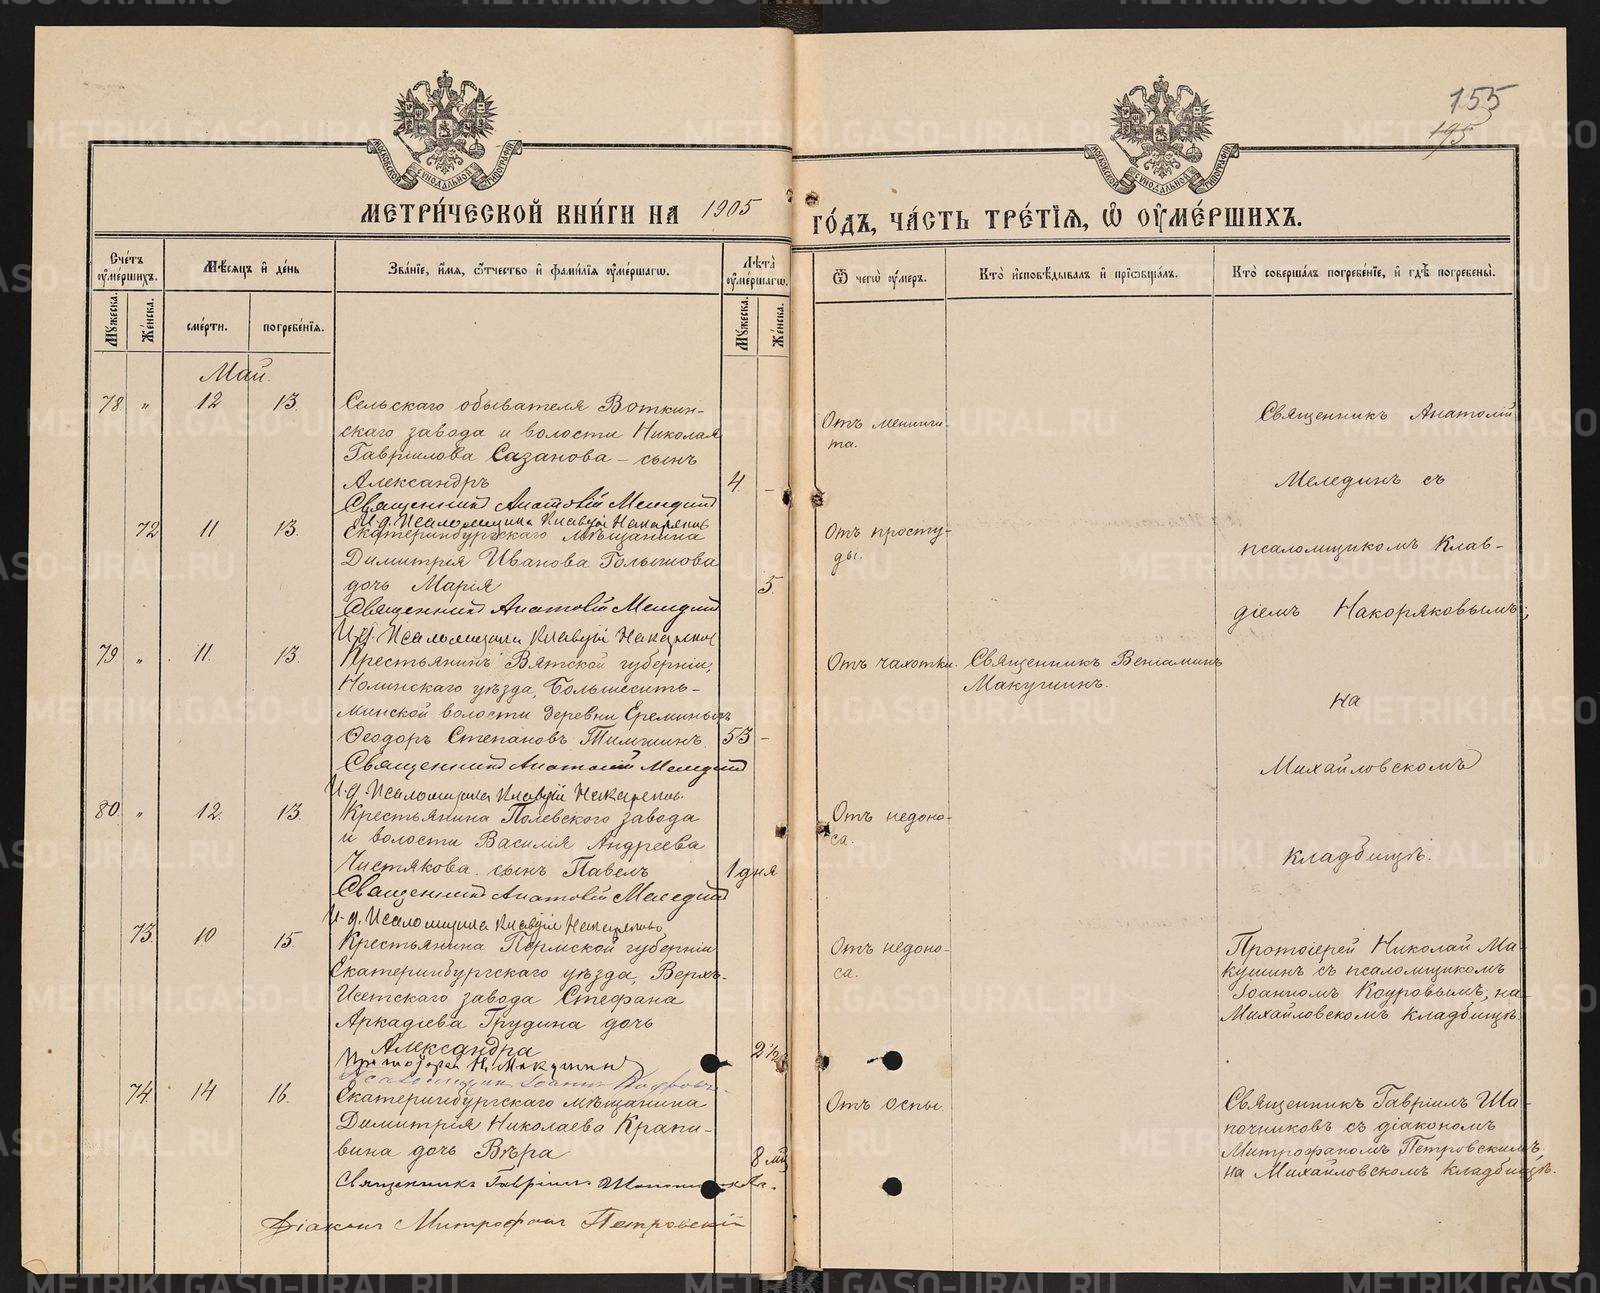 155
195
МЕТРИЧЕСКОЙ КНИГИ НА 1905 ГОДЪ, ЧАСТЬ ТРЕТІЯ, Ѿ ОУМЕРШИХЪ.
Счетъ оумершихъ.
Мѣсяцъ и день
Званіе, имя, отчество и фамилія оумершагѡ.
Лѣта оумершагѡ.
Ѿ чегѡ оумеръ.
Кто исповѣдывалъ и пріобщалъ.
Кто совершалъ погребеніе, и гдѣ погребены.
Мужеска.
Женска.
смерти.
погребенія.
Мужеска.
Женска.
Май.
78 " 12 13. Сельскаго обывателя Воткин-
скаго завода и волости Николая
Гавріилова Сазанова – сынъ
Александръ 4 –
Отъ менинги-
та.
Священникъ Анатолій Меледин
И. д. Псаломщика Клавдій Накоряков
72 11 13. Екатеринбургскаго мѣщанина
Димитрія Иванова Голышова
дочь Марія 5
Отъ просту-
ды.
Священник Анатолій Меледин
И. д. Псаломщика Клавдій Накоряков
79 " 11. 13. Крестьянинъ Вятской губерніи,
Нолинскаго уѣзда, Большесить-
минской волости деревни Ереминыхъ
Ѳеодоръ Степановъ Тимшинъ. 53 –
Отъ чахотки. Священникъ Веніаминъ
Макушинъ.
Священник Анатолій Меледин
И. д. Псаломщика Клавдій Накоряков.
80 " 12. 13. Крестьянина Полевского завода
и волости Василія Андреева
Чистякова сынъ Павелъ 1 дня
Отъ недоно-
са.
Священник Анатолій Меледин
И. д. Псаломщика Клавдій Накоряков
Священникъ Анатолій
Мелединъ съ
псаломщикомъ Клав-
діемъ Накоряковымъ,
на
Михайловскомъ
кладбищѣ.
73. 10 15. Крестьянина Пермской губерніи
Екатеринбургскаго уѣзда, Верхъ-
Исетскаго завода Стефана
Аркадіева Грудина дочь
Александра 2½
Отъ недоно-
са.
Протоіерей Николай Ма-
кушинъ съ псаломщикомъ
Іоанномъ Коуровымъ, на
Михайловскомъ кладбищѣ.
Протоіерей Н. Макушин
Псаломщик Іоанн Коуровъ
74. 14 16. Екатеринбургскаго мѣщанина
Димитрія Николаева Крапи-
вина дочь Вѣра 8 мц
Отъ оспы.
Священникъ Гавріилъ Ша-
почниковъ съ діакономъ
Митрофаномъ Петровскимъ,
на Михайловскомъ кладбищѣ.
Священникъ Гавріилъ
Діаконъ Митрофанъ Петровскій
METRIKI.GASO-URAL.RU